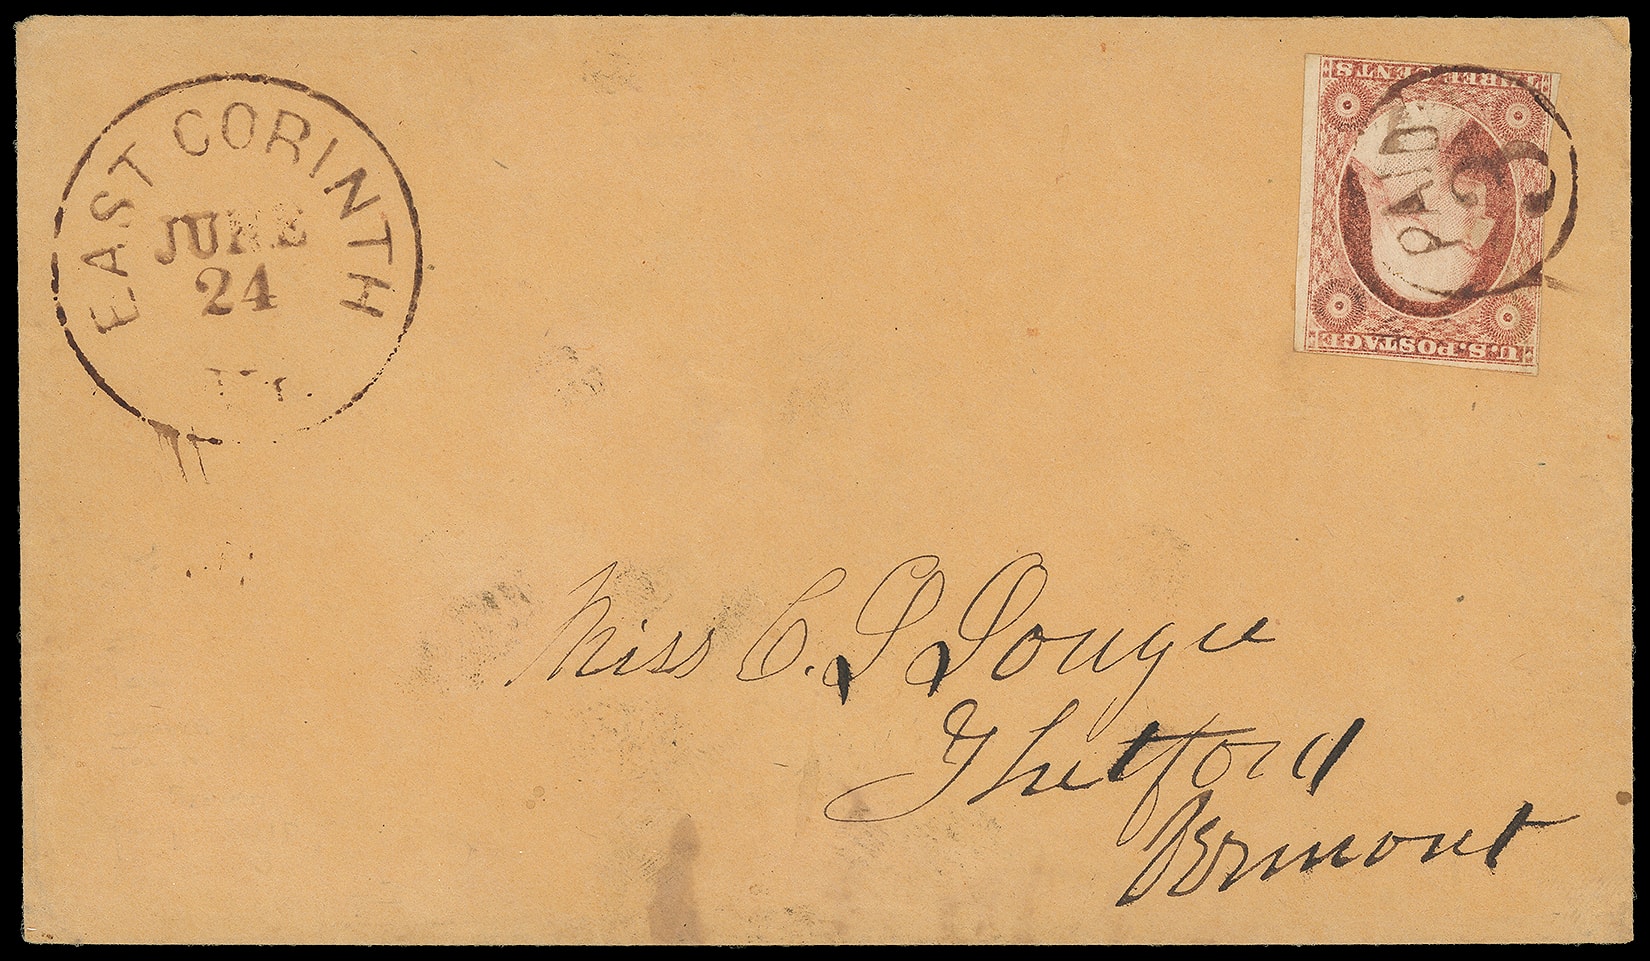 EAST CORINTH
JUNE
24
THREE CENTS
PAID
3
U.S. POSTAGE
Miss C. L Dougie
Thetford
Vermont